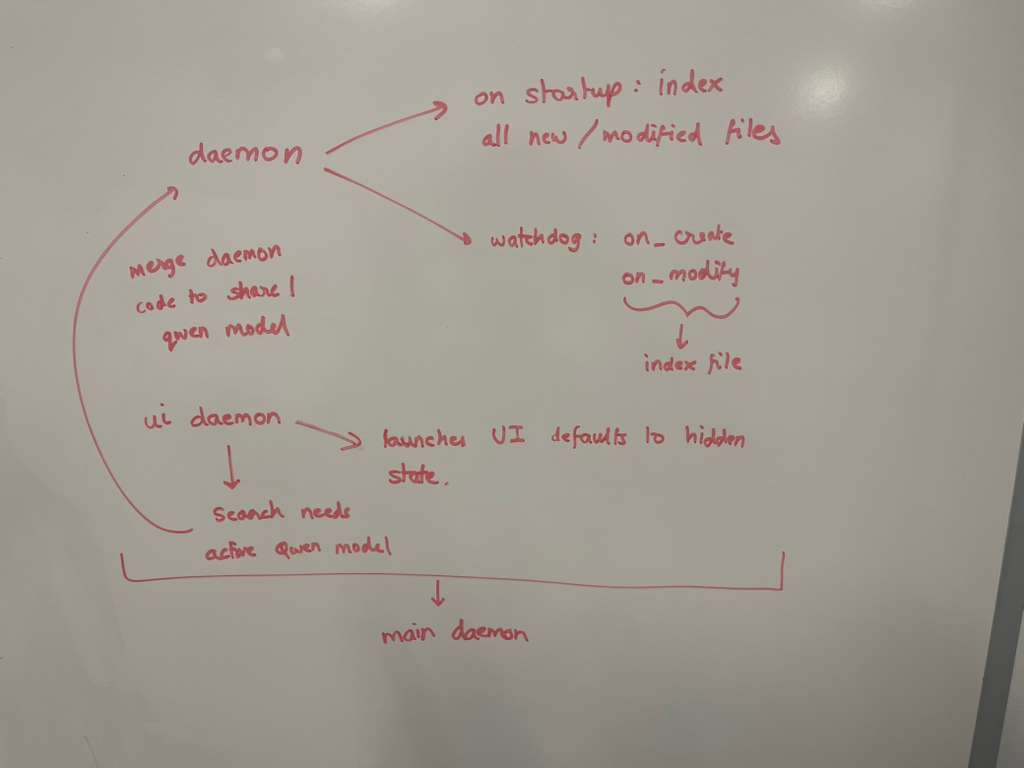 on startup: index
all new/modified files
daemon
watchdog: on_create
on_modify
index file
merge daemon
code to share 1
qwen model
ui daemon
launches UI defaults to hidden
state.
search needs
active Qwen model
main daemon